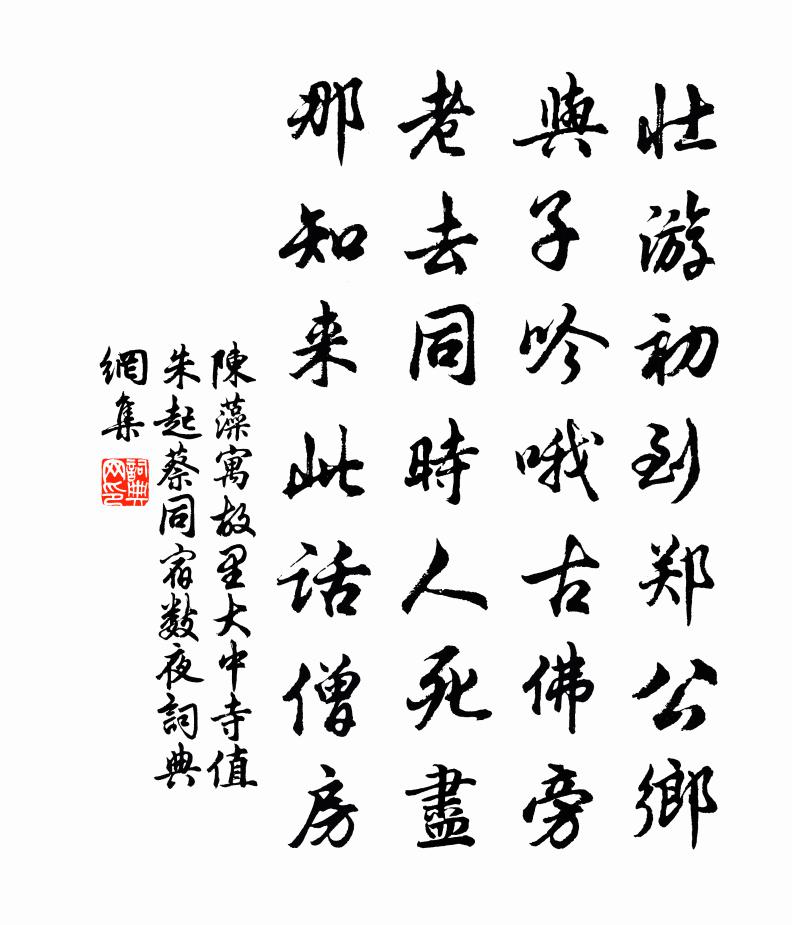 壮游初到郑公鄉
與子吟哦古佛旁
老去同時人死盡
那知来此話僧房
陳藻寓故里大中寺值
朱起蔡同宿数夜詞典
網集
詞典
网印